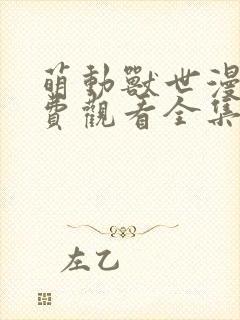 萌動獸世漫
費觀看全集
左乙